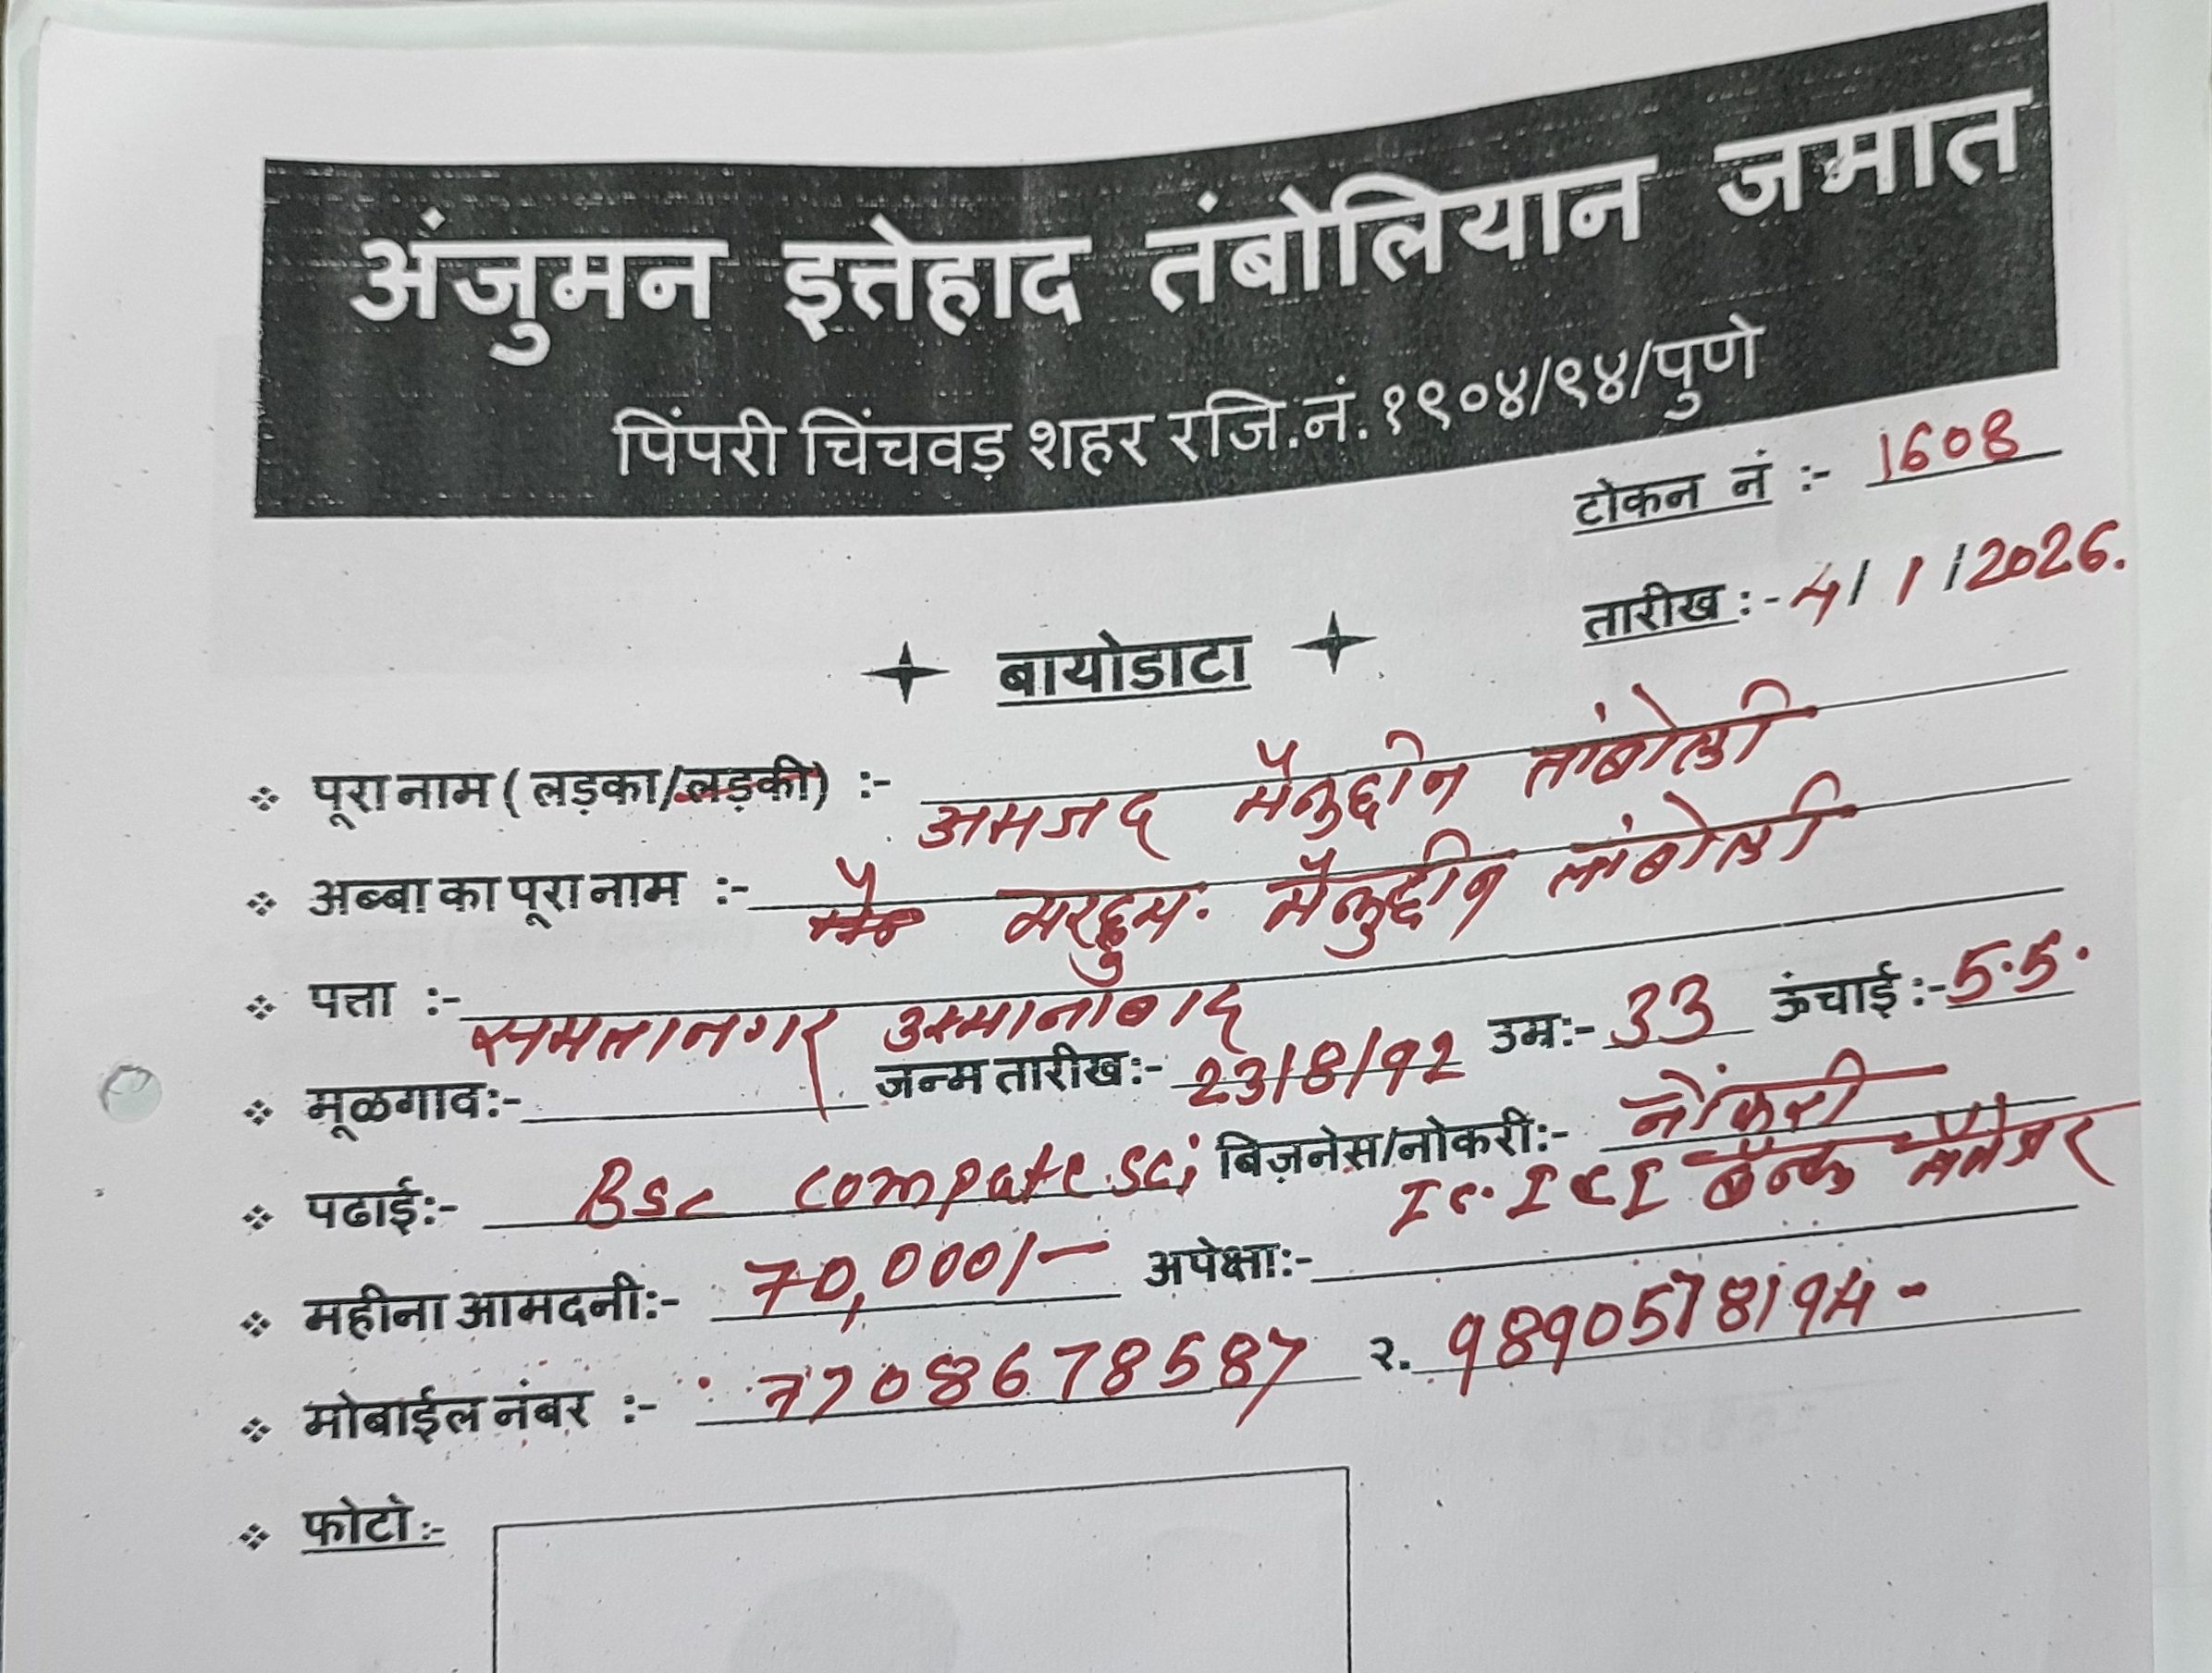 अंजुमन इत्तेहाद तंबोलियान जमात
पिंपरी चिंचवड़ शहर रजि.नं.१९०४/९४/पुणे
टोकन नं :- 1608
तारीख :- 4/1/2026.
बायोडाटा
पूरा नाम ( लड़का/लड़की) :- अमजद मैनुद्दीन तांबोली
अब्बा का पूरा नाम :- मरहुम. मैनुद्दीन तांबोली
पत्ता :- समतानगर उस्मानाबाद
मूळगाव:- जन्म तारीख:- 23/8/92 उम्र:- 33 ऊंचाई :- 5.5.
पढाई:- Bsc compute.sci बिज़नेस/नोकरी:- नौकरी
Ic.ICI बैन्क मॅनेजर
महीना आमदनी:- 70,000/- अपेक्षा:-
मोबाईल नंबर :- 7708678587 २. 9890578194-
फोटो :-